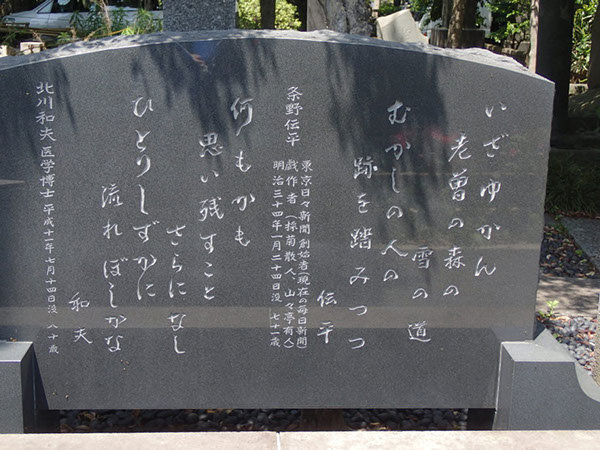 いざゆかん
老曽の森の
雪の道
むかしの人の
跡を踏みつつ
伝平
条野伝平
東京日々新聞創始者(現在の毎日新聞)
戯作者(採菊散人、山々亭有人)
明治三十四年一月二十四日没 七十一歳
何もかも
思い残すこと
さらになし
ひとりしずかに
流れぼしかな
和夫
北川和夫 医学博士 平成十一年七月十四日没 八十歳